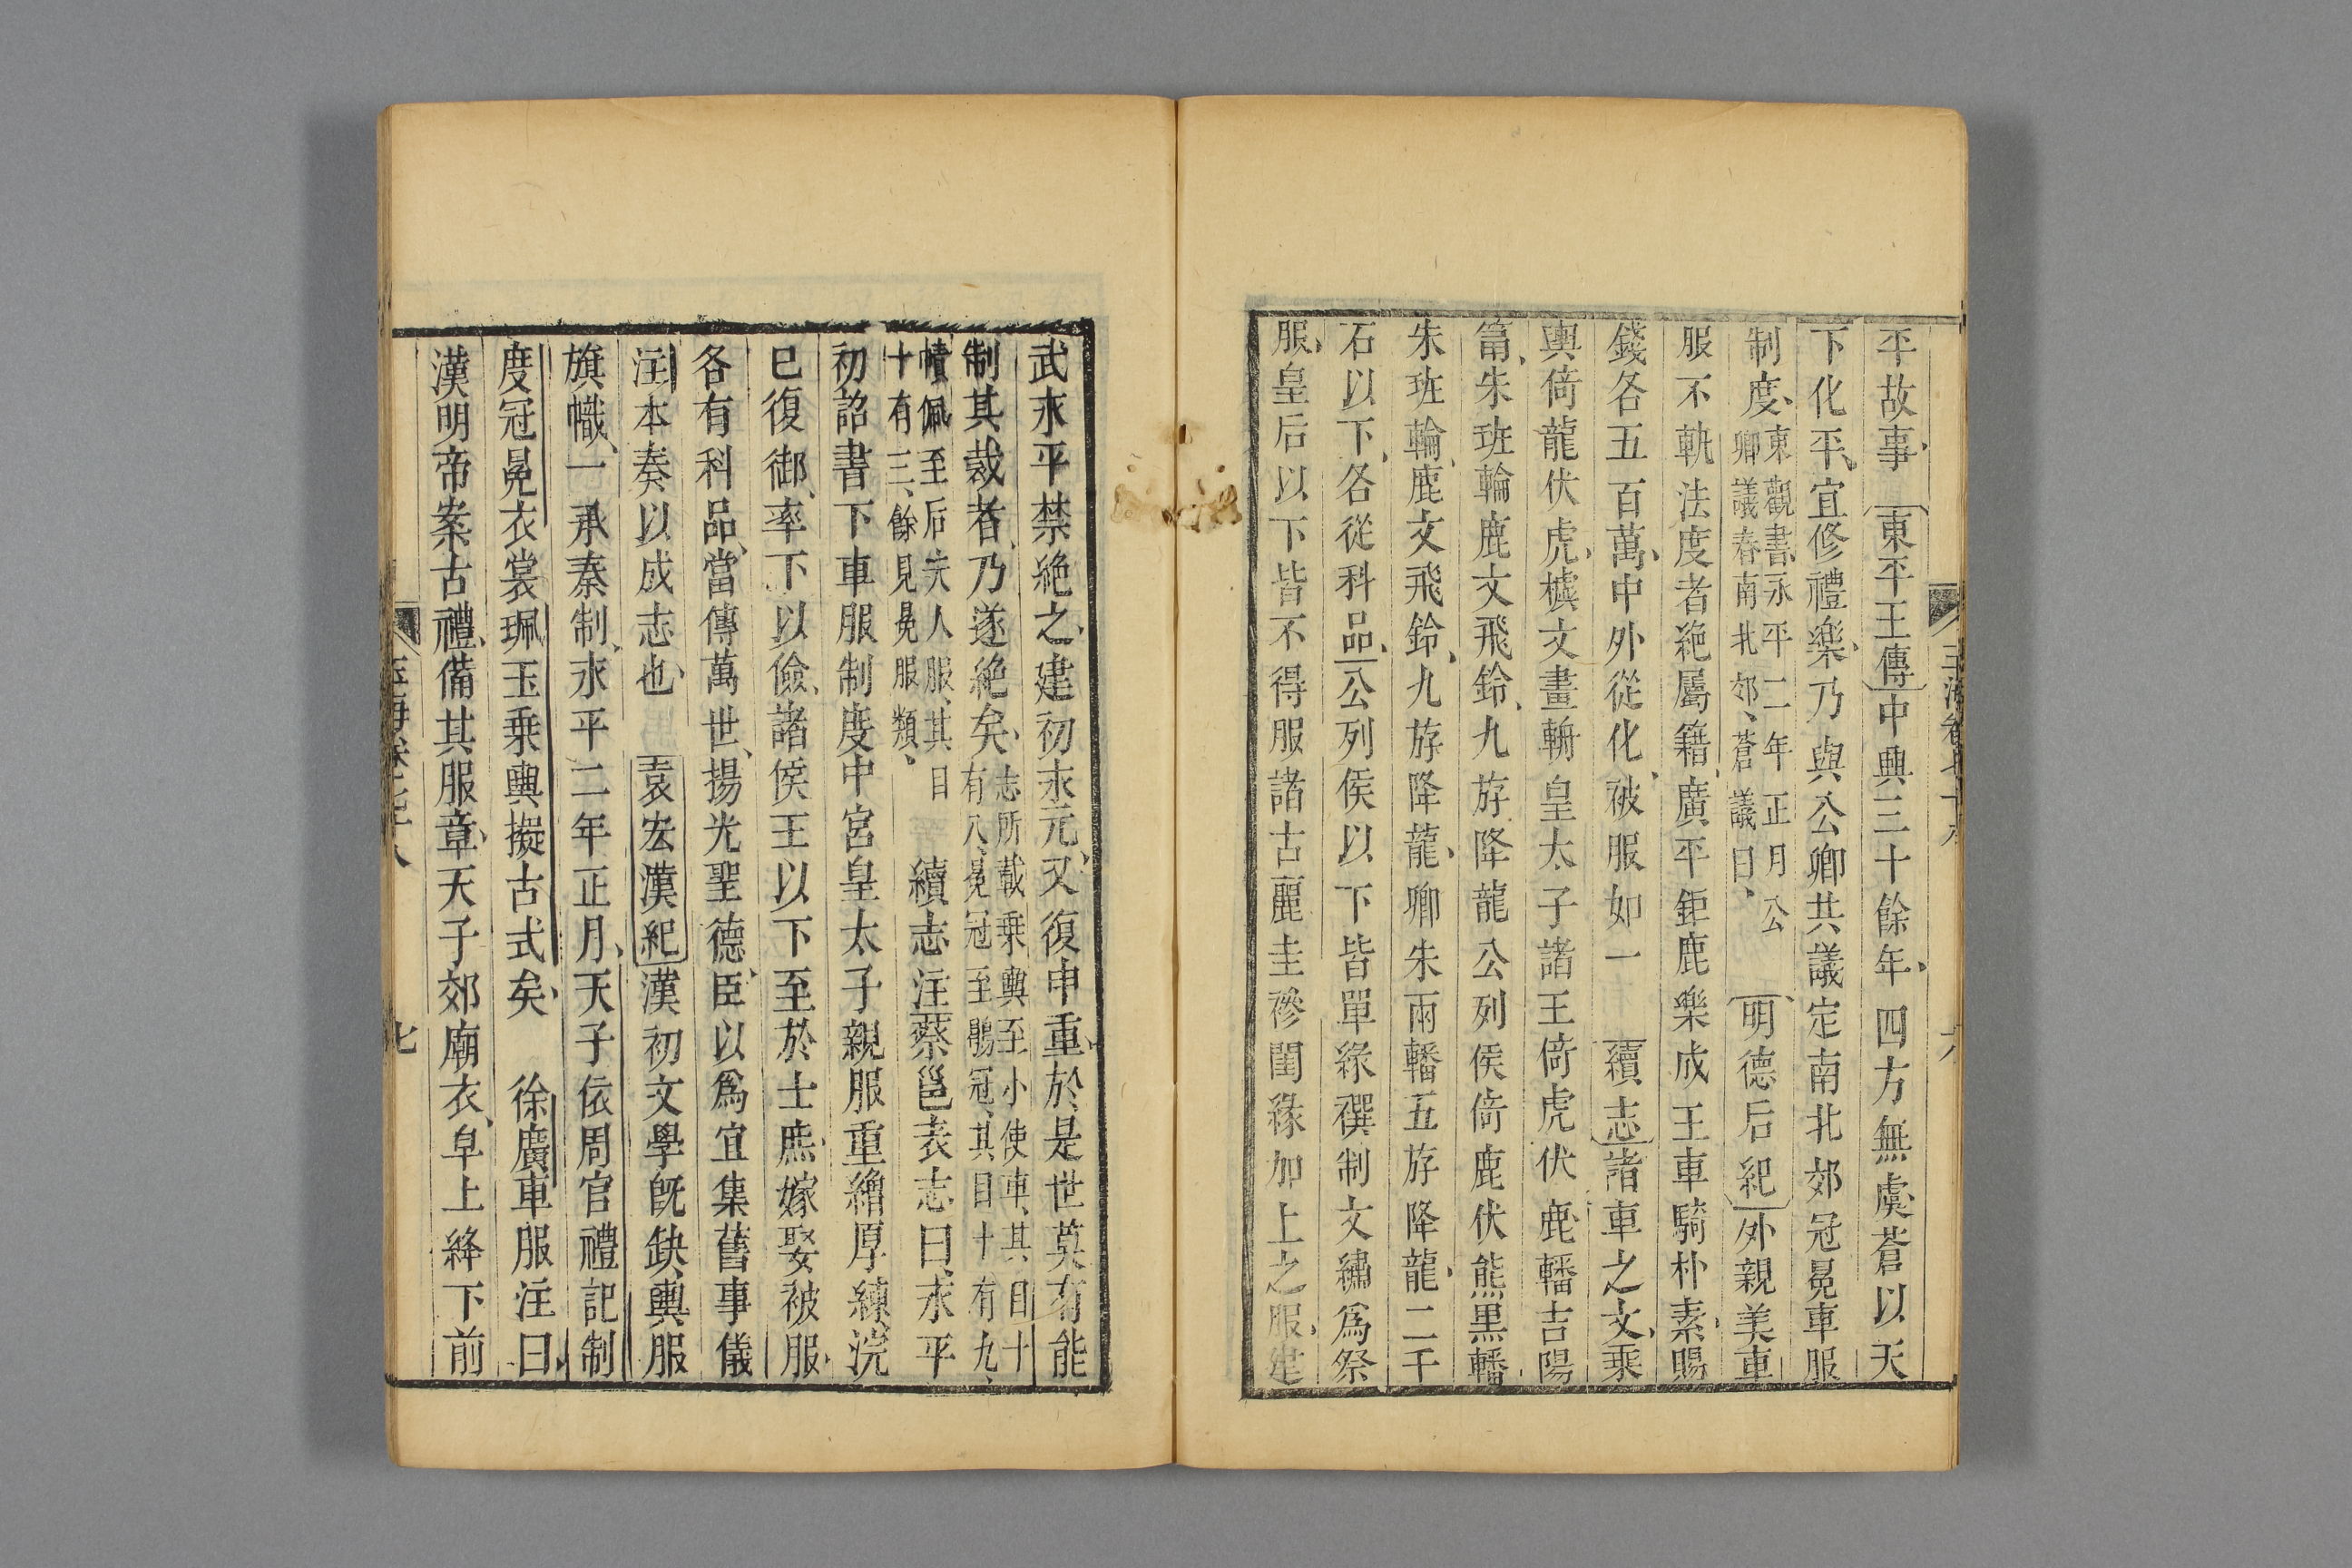 平故事東平王傳中興三十餘年四方無虞蒼以天
下化平宜修禮樂乃與公卿共議定南北郊冠冕車服
制度東觀書永平二年正月公卿議春南北郊蒼議曰明德后紀外親美車
服不軌法度者絶屬籍廣平鉅鹿樂成王車騎朴素賜
錢各五百萬中外從化被服如一續志諸車之文乘
輿倚龍伏虎櫖文畫輈皇太子諸王倚虎伏鹿轓吉陽
筩朱班輪鹿文飛鈴九斿降龍公列侯倚鹿伏熊黒轓
朱班輪鹿文飛鈴九斿降龍卿朱兩轓五斿降龍二千
石以下各從科品公列侯以下皆單緣襈制文繡爲祭
服皇后以下皆不得服諸古麗圭襂閨緣加上之服建
武永平禁絶之建初永元又復申重於是世莫有能
制其裁者乃遂絶矣志所載乗輿至小使車其目十有八冕冠至鶡冠其目十有九
幘佩至后夫人服其目十有三餘見冕服類續志注蔡邕表志曰永平
初詔書下車服制度中宮皇太子親服重繒厚練浣
已復御率下以儉諸侯王以下至於士庶嫁娶被服
各有科品當傳萬世揚光聖德臣以爲宜集舊事儀
注本奏以成志也袁宏漢紀漢初文學旣缺輿服
旗幟一承秦制永平二年正月天子依周官禮記制
度冠冕衣裳珮玉乗輿擬古式矣徐廣車服注曰
漢明帝案古禮備其服章天子郊廟衣皁上絳下前